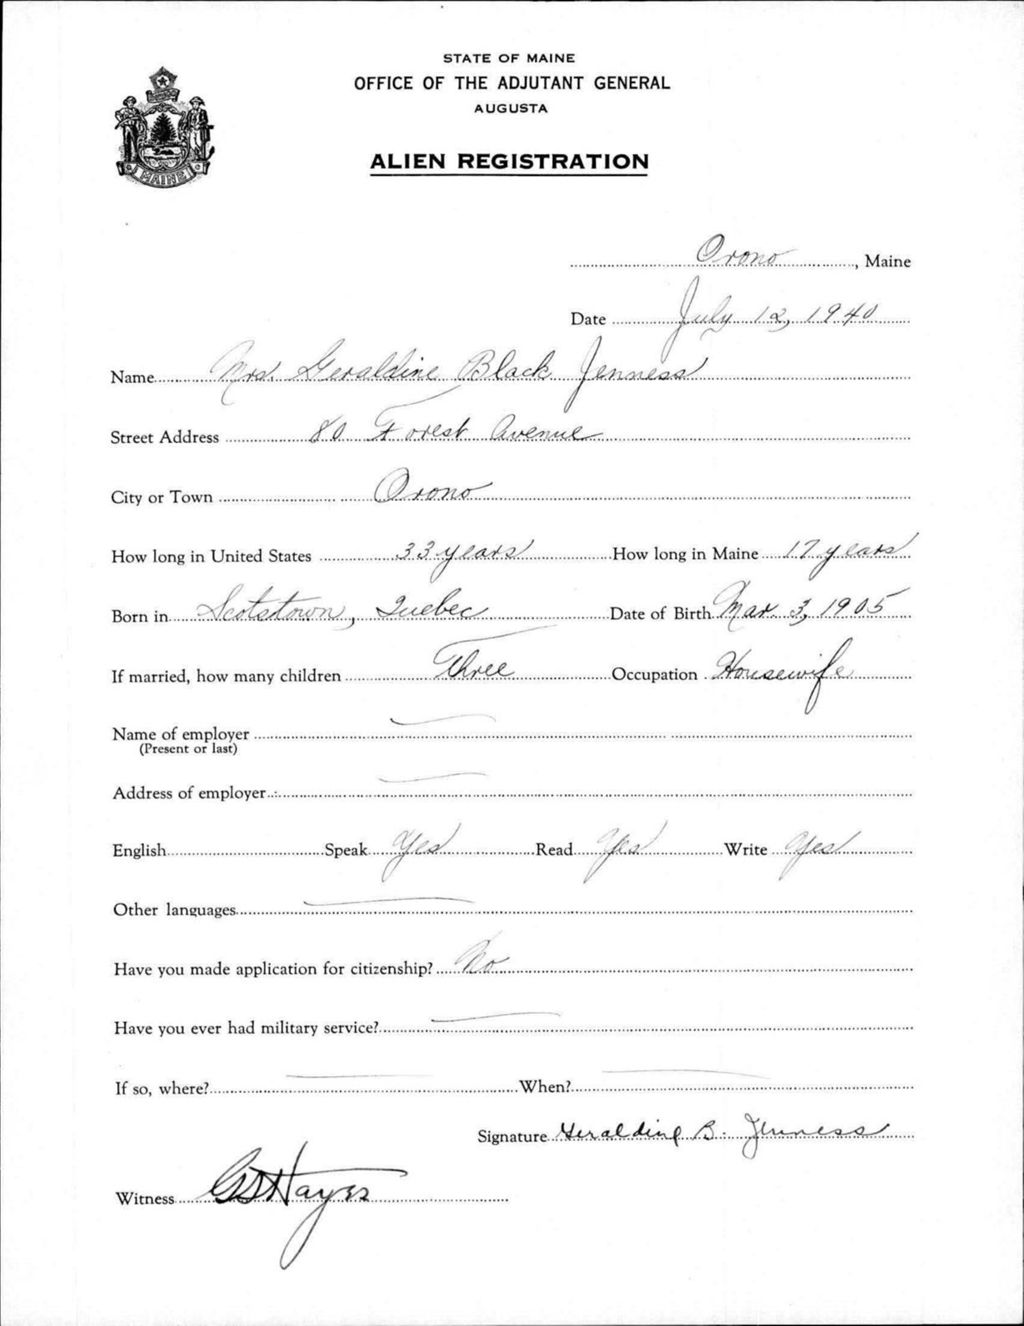 STATE OF MAINE
OFFICE OF THE ADJUTANT GENERAL
AUGUSTA
ALIEN REGISTRATION
MAINE
Orono, Maine
Date July 12, 1940
Name Mrs. Geraldine Black Jenness
Street Address 80 Forest Avenue
City or Town Orono
How long in United States 33 years How long in Maine 17 years
Born in Scotstown, Quebec Date of Birth Mar. 3, 1905
If married, how many children Three Occupation Housewife
Name of employer
(Present or last)
Address of employer
English Speak Yes Read Yes Write Yes
Other languages
Have you made application for citizenship? No
Have you ever had military service?
If so, where? When?
Signature Geraldine B. Jenness
Witness Hayes